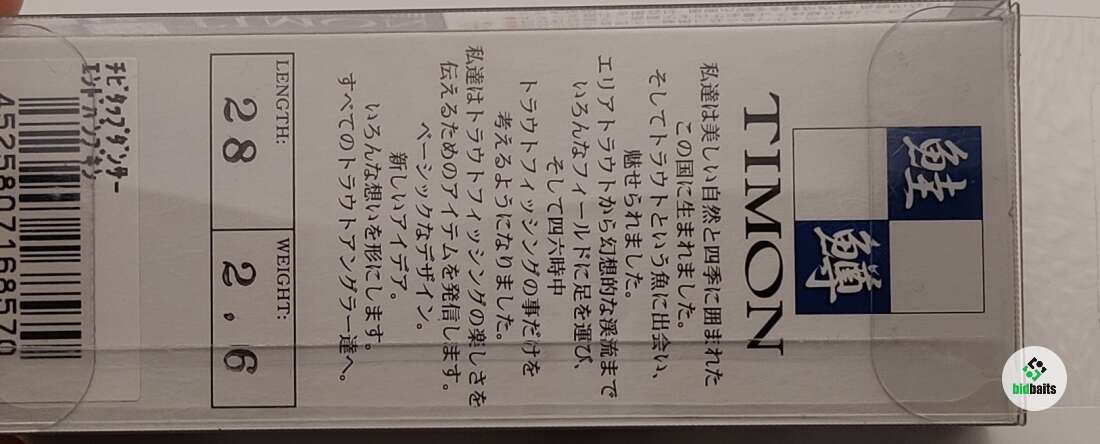 鮭
鱒
TIMON
私達は美しい自然と四季に囲まれた
この国に生まれました。
そしてトラウトという魚に出会い、
魅せられました。
エリアトラウトから幻想的な渓流まで
いろんなフィールドに足を運び、
そして四六時中
トラウトフィッシングの事だけを
考えるようになりました。
私達はトラウトフィッシングの楽しさを
伝えるためのアイテムを発信します。
ベーシックなデザイン。
新しいアイデア。
いろんな想いを形にします。
すべてのトラウトアングラー達へ。
LENGTH: WEIGHT:
28 2.6
ﾁﾋﾞﾀｯﾌﾟﾀﾞﾝｻｰ
4525807168570
bidbaits